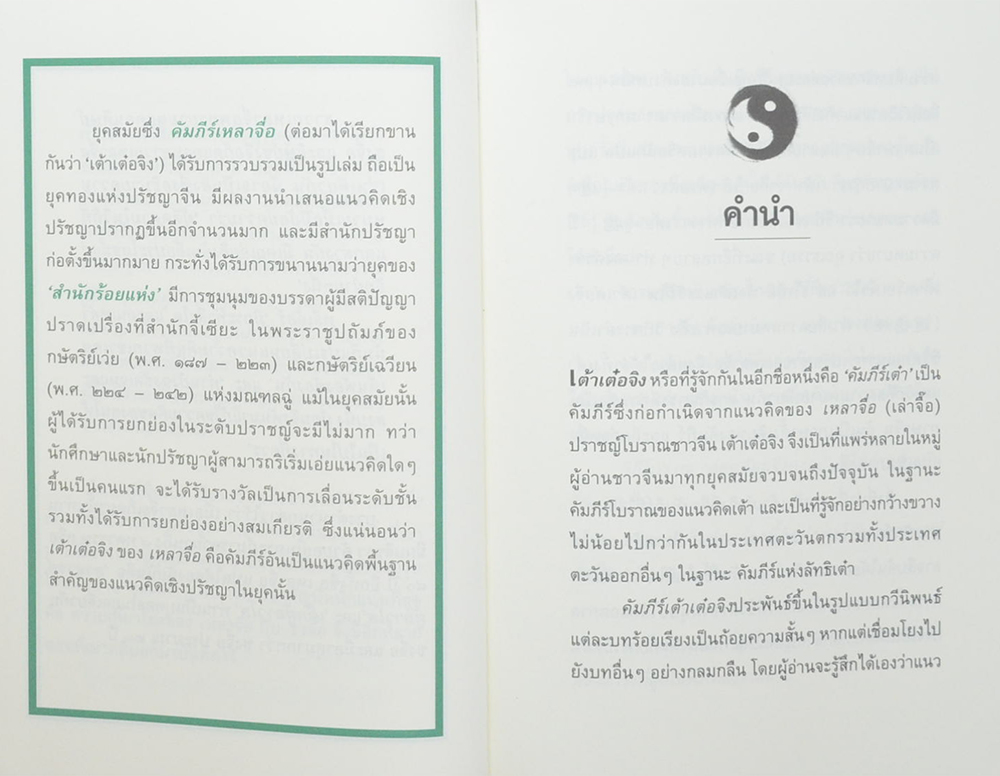 ยุคสมัยซึ่ง คัมภีร์เหลาจื่อ (ต่อมาได้เรียกขาน
กันว่า ‘เต้าเต๋อจิง’) ได้รับการรวบรวมเป็นรูปเล่ม ถือเป็น
ยุคทองแห่งปรัชญาจีน มีผลงานนำเสนอแนวคิดเชิง
ปรัชญาปรากฏขึ้นอีกจำนวนมาก และมีสำนักปรัชญา
ก่อตั้งขึ้นมากมาย กระทั่งได้รับการขนานนามว่ายุคของ
‘สำนักร้อยแห่ง’ มีการชุมนุมของบรรดาผู้มีสติปัญญา
ปราดเปรื่องที่สำนักจี้เซียะ ในพระราชูปถัมภ์ของ
กษัตริย์เว่ย (พ.ศ. ๑๘๗ – ๒๒๓) และกษัตริย์เฉวียน
(พ.ศ. ๒๒๔ – ๒๔๒) แห่งมณฑลฉู่ แม้ในยุคสมัยนั้น
ผู้ได้รับการยกย่องในระดับปราชญ์จะมีไม่มาก ทว่า
นักศึกษาและนักปรัชญาผู้สามารถริเริ่มเอ่ยแนวคิดใดๆ
ขึ้นเป็นคนแรก จะได้รับรางวัลเป็นการเลื่อนระดับชั้น
รวมทั้งได้รับการยกย่องอย่างสมเกียรติ ซึ่งแน่นอนว่า
เต้าเต๋อจิง ของ เหลาจื่อ คือคัมภีร์อันเป็นแนวคิดพื้นฐาน
สำคัญของแนวคิดเชิงปรัชญาในยุคนั้น
คำนำ
เต้าเต๋อจิง หรือที่รู้จักกันในอีกชื่อหนึ่งคือ ‘คัมภีร์เต๋า’ เป็น
คัมภีร์ซึ่งก่อกำเนิดจากแนวคิดของ เหลาจื่อ (เล่าจื๊อ)
ปราชญ์โบราณชาวจีน เต้าเต๋อจิง จึงเป็นที่แพร่หลายในหมู่
ผู้อ่านชาวจีนมาทุกยุคสมัยจวบจนถึงปัจจุบัน ในฐานะ
คัมภีร์โบราณของแนวคิดเต้า และเป็นที่รู้จักอย่างกว้างขวาง
ไม่น้อยไปกว่ากันในประเทศตะวันตกรวมทั้งประเทศ
ตะวันออกอื่นๆ ในฐานะ คัมภีร์แห่งลัทธิเต๋า
คัมภีร์เต้าเต๋อจิงประพันธ์ขึ้นในรูปแบบกวีนิพนธ์
แต่ละบทร้อยเรียงเป็นถ้อยความสั้นๆ หากแต่เชื่อมโยงไป
ยังบทอื่นๆ อย่างกลมกลืน โดยผู้อ่านจะรู้สึกได้เองว่าแนว